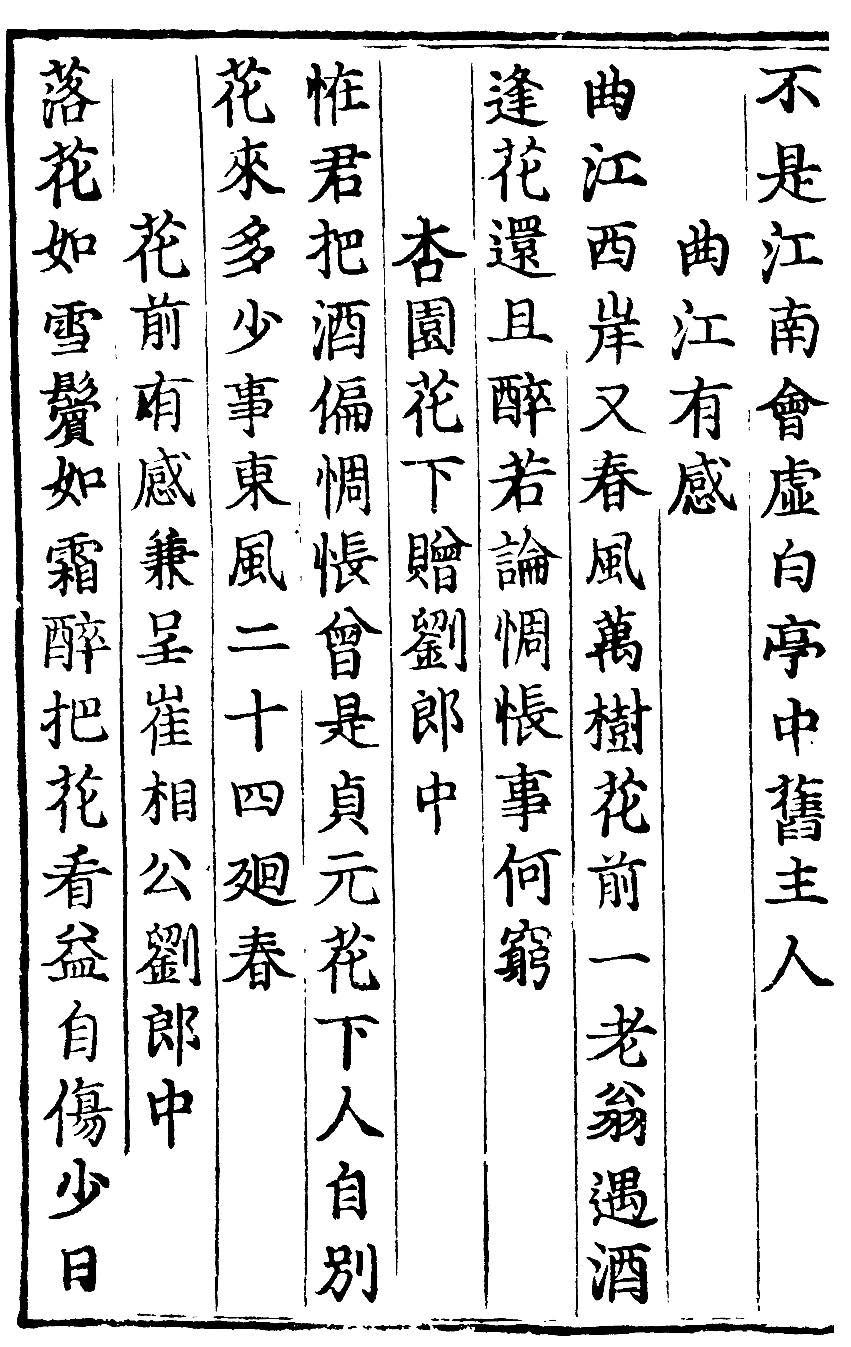 不是江南會虛白亭中舊主人
曲江有感
曲江西岸又春風萬樹花前一老翁遇酒
逢花還且醉若論惆悵事何窮
杏園花下贈劉郎中
恠君把酒偏惆悵曾是貞元花下人自別
花來多少事東風二十四廻春
花前有感兼呈崔相公劉郎中
落花如雪鬢如霜醉把花看益自傷少日